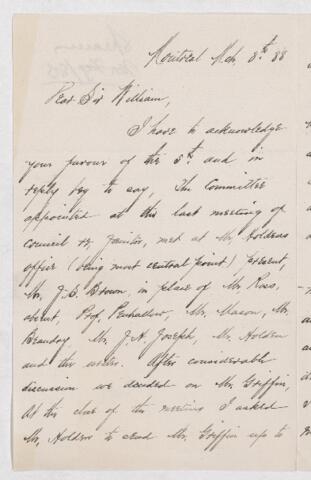 Montreal Mch. 8th. 88
Dear Sir William,
I have to acknowledge
your favour of the 5th. and in
reply beg to say, The Committee
appointed at the last meeting of
council re Janitor, met at Mr. Holdens
office (being most central point) Present,
Mr. J. S. Brown, in place of Mr. Ross,
absent, Prof. Penhallow, Mr. Mason, Mr.
Beaudry Mr. J. H. Joseph, Mr. Holden
and the writer. After considerable
discussion we decided on Mr. Griffin,
At the close of the meeting I asked
Mr. Holden to send Mr. Griffin up to